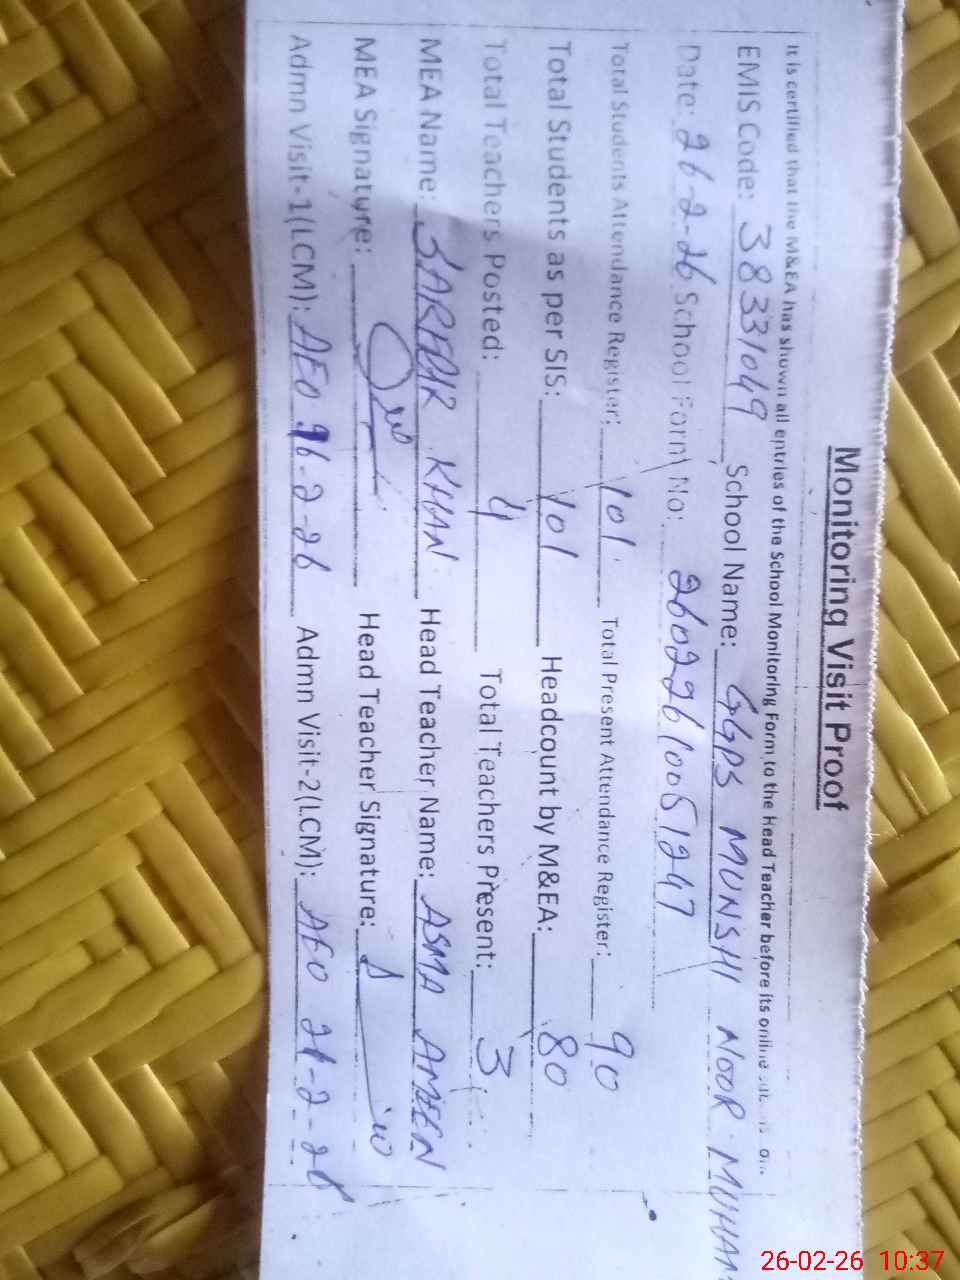 Monitoring Visit Proof
It is certified that the M&EA has shown all entries of the School Monitoring Form to the Head Teacher before its online
EMIS Code: 38331049 School Name: GGPS MUNSHI NOOR MUHAM
Date: 26-2-26 School Form No: 26022610051247
Total Students Attendance Register: 101 Total Present Attendance Register: 90
Total Students as per SIS: 101 Headcount by M&EA: 80
Total Teachers Posted: 4 Total Teachers Present: 3
MEA Name: SARFRAR KHAN Head Teacher Name: ASMA AMEEN
MEA Signature: Head Teacher Signature:
Admn Visit-1(LCM): AEO 96-2-26 Admn Visit-2(LCM): AEO
26-02-26 10:37